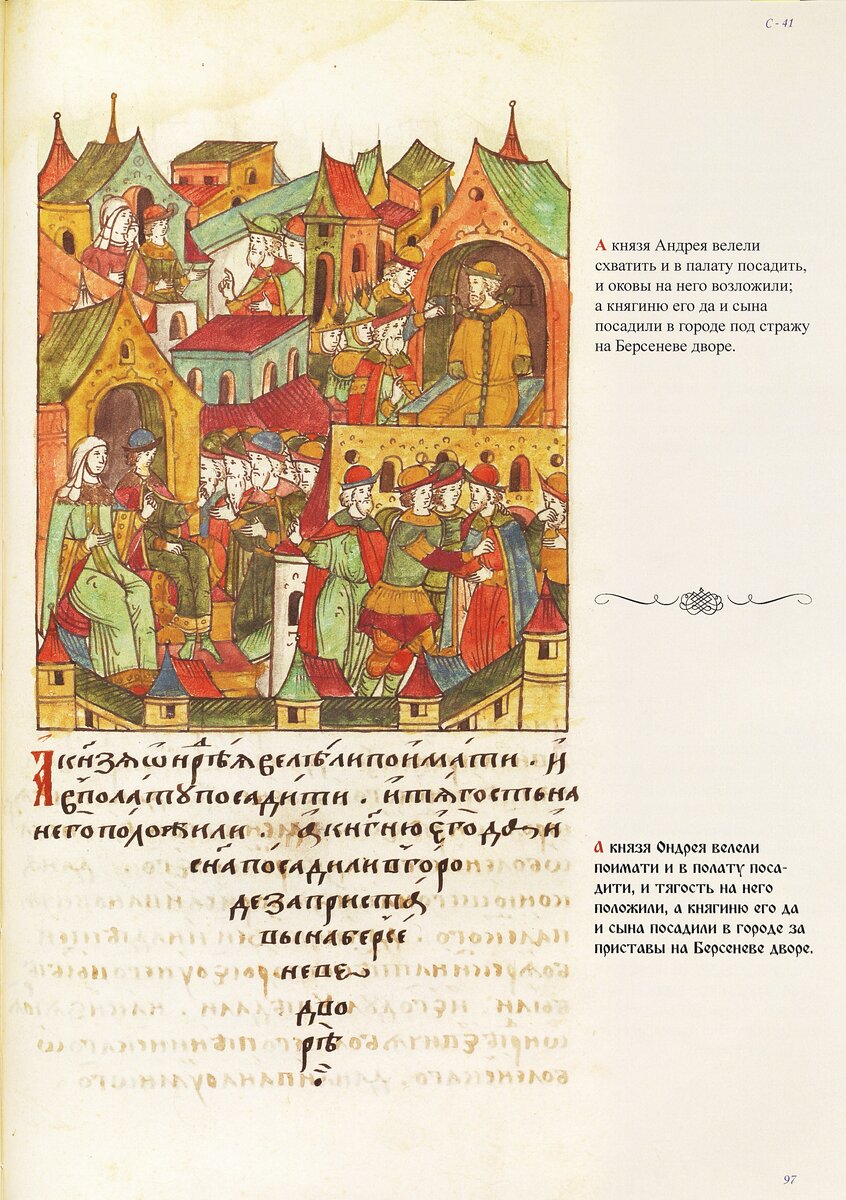 С - 41
А князя Андрея велели
схватить и в палату посадить,
и оковы на него возложили;
а княгиню его да и сына
посадили в городе под стражу
на Берсеневе дворе.
А кнѧзѧ ѡндрѣѧ велѣли поимати . и
в полату посадити . и тѧгость на
него положили . а кнѧгиню его да и
сына посадили в горо
де за приста
вы на берсе
неве
дво
рѣ
а князя Ондрея велели
поимати и в полату поса-
дити, и тягость на него
положили, а княгиню его да
и сына посадили в городе за
приставы на Берсеневе дворе.
97